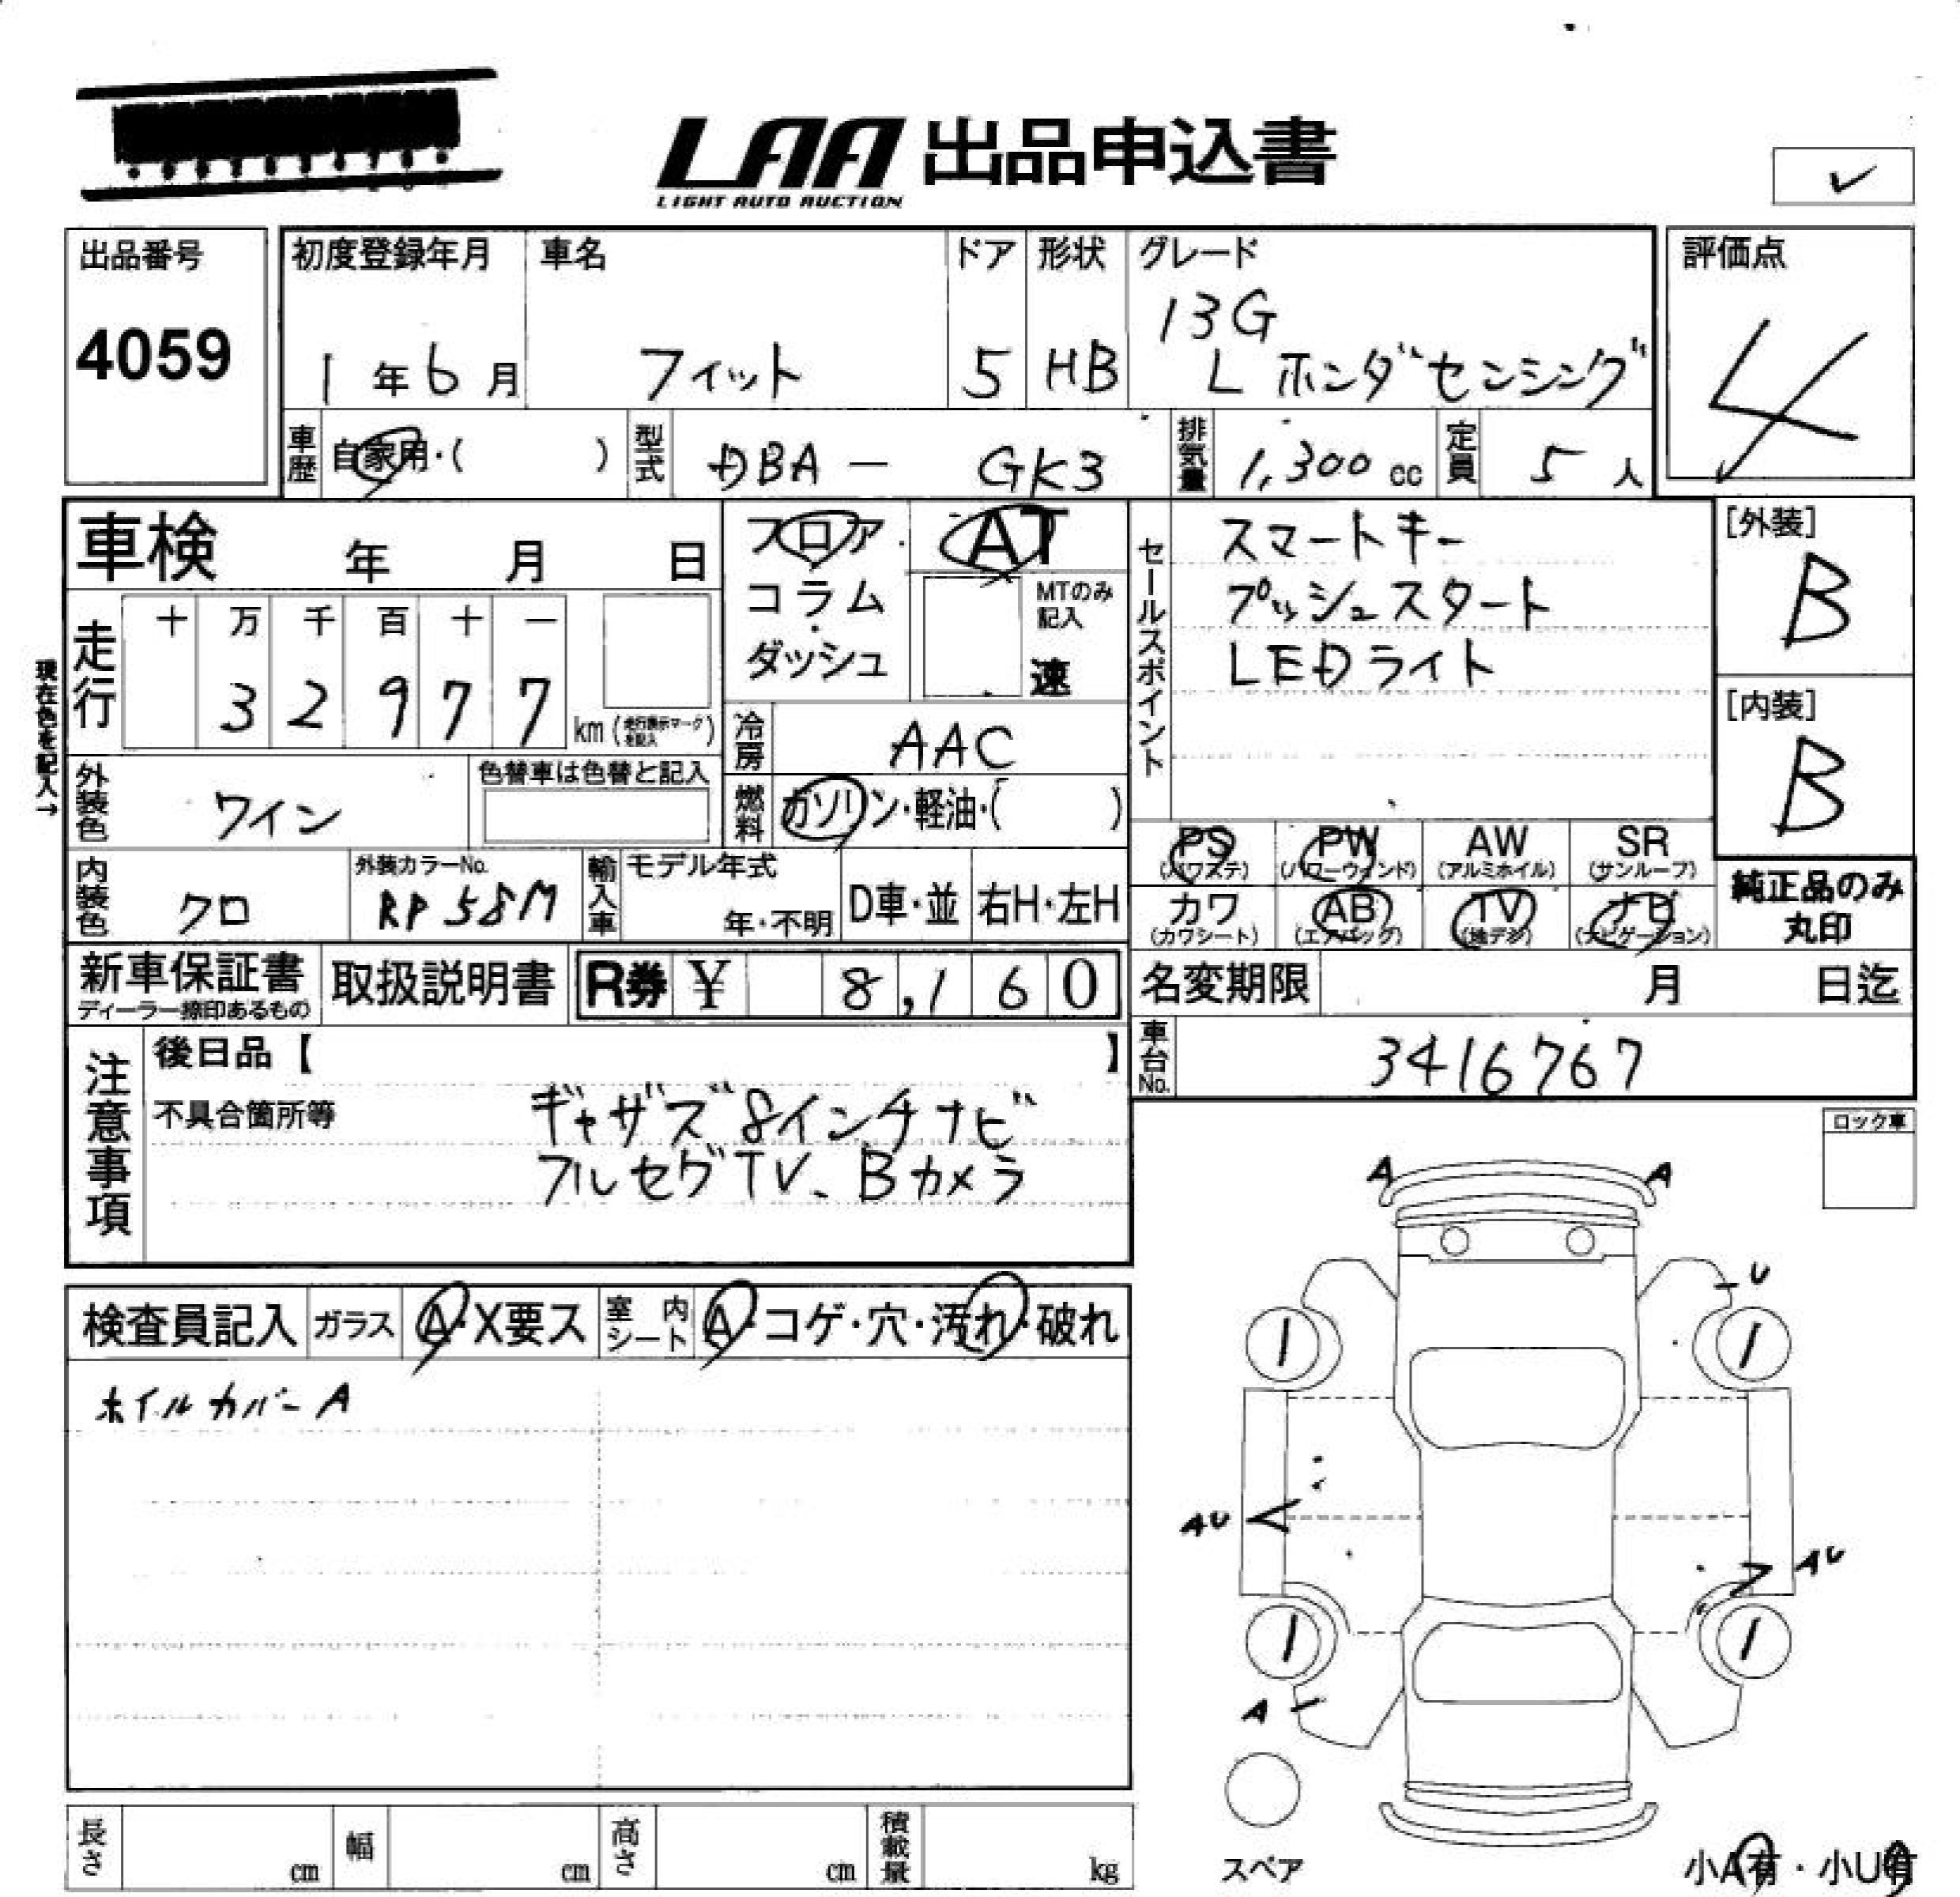 LAA 出品申込書
LIGHT AUTO AUCTION
✓
出品番号
4059
初度登録年月
1年6月
車名
フィット
ドア
5
形状
HB
グレード
13G
L ホンダセンシング
評価点
4
車歴
自家用・( )
型式
DBA - GK3
排気量
1,300 cc
定員
5 人
車検 年 月 日
フロア・
コラム・
ダッシュ
AT
MTのみ
記入
速
セールスポイント
スマートキー
プッシュスタート
LEDライト
[外装]
B
[内装]
B
現在色を記入→
走行
十 万 千 百 十 一
3 2 9 7 7
km (走行表示マークを記入)
冷房
AAC
外装色
ワイン
色替車は色替と記入
燃料
ガソリン・軽油・( )
PS
(パワステ)
PW
(パワーウィンド)
AW
(アルミホイル)
SR
(サンルーフ)
内装色
クロ
外装カラーNo.
RP58M
輸入車
モデル年式
年・不明
D車・並
右H・左H
カワ
(カワシート)
AB
(エアバッグ)
TV
(地デジ)
ナビ
(ナビゲーション)
純正品のみ
丸印
新車保証書
ディーラー捺印あるもの
取扱説明書
R券 ¥ 8,160
名変期限 月 日迄
車台No.
3416767
注意事項
後日品【 】
不具合箇所等
ギャザズ8インチナビ
フルセグTV、Bカメラ
ロック車
A
A
U
検査員記入
ガラス
A・X要ス
室内シート
A・コゲ・穴・汚れ・破れ
ホイルカバーA
1
1
AU
AU
1
1
A
スペア
小A有・小U有
長さ cm
幅 cm
高さ cm
積載量 kg